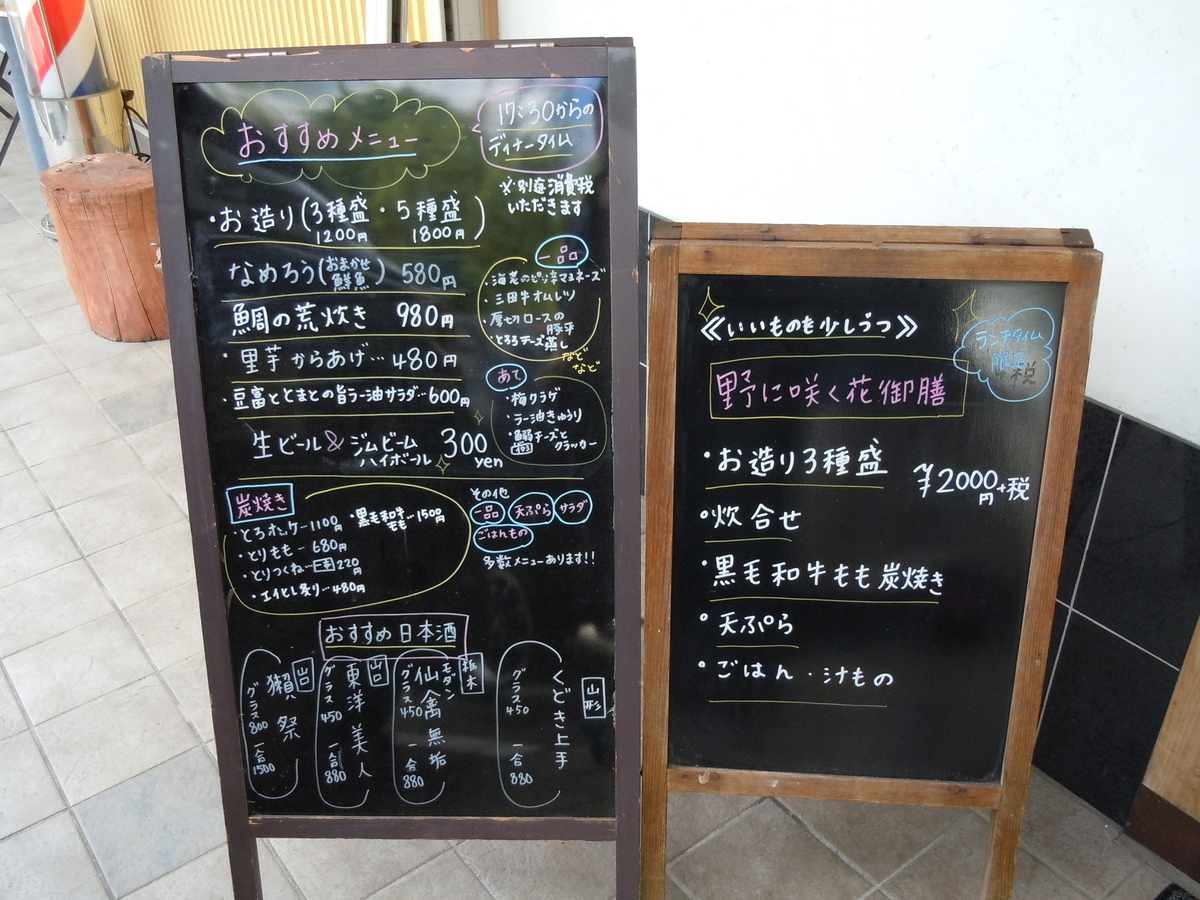 おすすめメニュー
17:30からの
ディナータイム
※別途消費税
いただきます
・お造り(3種盛・5種盛)
1200円 1800円
なめろう(おまかせ鮮魚) 580円
鯛の荒炊き 980円
・里芋からあげ…480円
・豆富ととまとの旨ラー油サラダ…600円
生ビール&ジムビームハイボール 300yen
一品
・海老のピリ辛マヨネーズ
・三田牛オムレツ
・厚切ロースの
・とろろチーズ蒸し
などなど
あて
・梅クラゲ
・ラー油きゅうり
・チーズと
クラッカー
炭焼き
・とろホッケ…1100円
・黒毛和牛もも…1500円
・とりもも…680円
・とりつくね…一本220円
・エイヒレ炙り…480円
その他
一品 天ぷら サラダ
ごはんもの
多数メニューあります!!
おすすめ日本酒
山口
獺祭
グラス800 一合1500
山口
東洋美人
グラス450 一合880
栃木
モダン仙禽無垢
グラス450 一合880
山形
くどき上手
グラス450 一合880
≪いいものを少しづつ≫
ランチタイム
限定
野に咲く花御膳
・お造り3種盛
¥2000円+税
・炊合せ
・黒毛和牛もも炭焼き
・天ぷら
・ごはん・汁もの